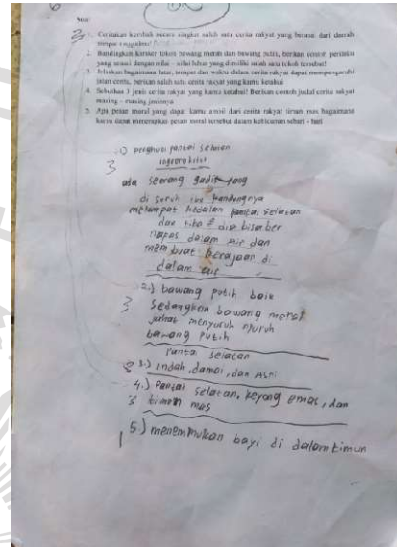 6
Soal
1. Ceritakan kembali secara singkat salah satu cerita rakyat yang berasal dari daerah tempat tinggalmu!
2. Bandingkan karakter tokoh bawang merah dan bawang putih, berikan contoh perilaku yang sesuai dengan nilai - nilai luhur yang dimiliki salah satu tokoh tersebut!
3. Jelaskan bagaimana latar, tempat dan waktu dalam cerita rakyat dapat mempengaruhi jalan cerita, berikan salah satu cerita rakyat yang kamu ketahui
4. Sebutkan 3 jenis cerita rakyat yang kamu ketahui! Berikan contoh judul cerita rakyat masing - masing jenisnya
5. Apa pesan moral yang dapat kamu ambil dari cerita rakyat timun mas bagaimana kamu dapat menerapkan pesan moral tersebut dalam kehidupan sehari - hari
1.) penghuni pantai selatan
3
ada seorang gadis yang
di suruh ibu kandungnya
melompat kedalam pantai selatan
dan tiba 2 dia bisa ber
napas dalam air dan
membuat kerajaan di
dalam air
2.) bawang putih baik
3 Sedangkan bawang merah
jahat menyuruh nyuruh
bawang putih
Pantai selatan
3.) indah, damai, dan asri
4.) Pantai selatan, keyong emas, dan
3 timun mas
1 5.) menemmukan bayi di dalam timun